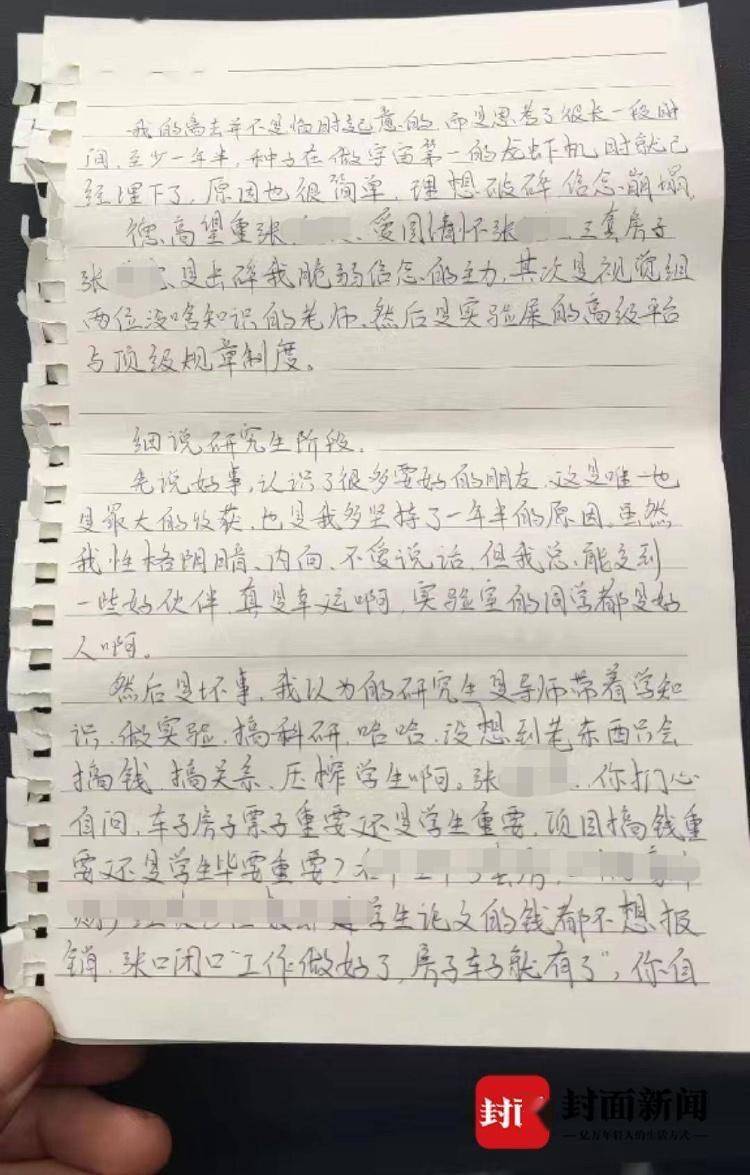 我的离去并不是临时起意的，而是思考了很长一段时
间，至少一年半，种子在做宇宙第一的龙虾机时就已
经埋下了，原因也很简单，理想破碎，信念崩塌。
德高望重张 、爱国情怀张 、三套房子
张 是击碎我脆弱信念的主力，其次是视觉组
两位没啥知识的老师，然后是实验屎的高级平台
与顶级规章制度。
细说研究生阶段。
先说好事，认识了很多要好的朋友，这是唯一也
是最大的收获，也是我多坚持了一年半的原因，虽然
我性格阴暗、内向、不爱说话，但我总能交到
一些好伙伴，真是幸运啊，实验室的同学都是好
人啊。
然后是坏事，我以为的研究生是导师带着学知
识、做实验、搞科研，哈哈，没想到老东西只会
搞钱、搞关系、压榨学生啊。张 ，你扪心
自问，车子房子票子重要还是学生重要，项目搞钱重
要还是学生毕要重要？
学生论文的钱都不想报
销，张口闭口“工作做好了，房子车子就有了”，你自
封面新闻
亿万年轻人的生活方式